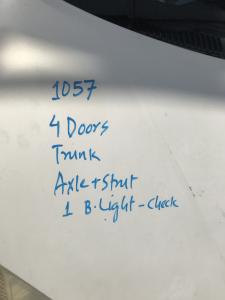 1057
4 Doors
Trunk
Axle + Strut
1 B. Light - check